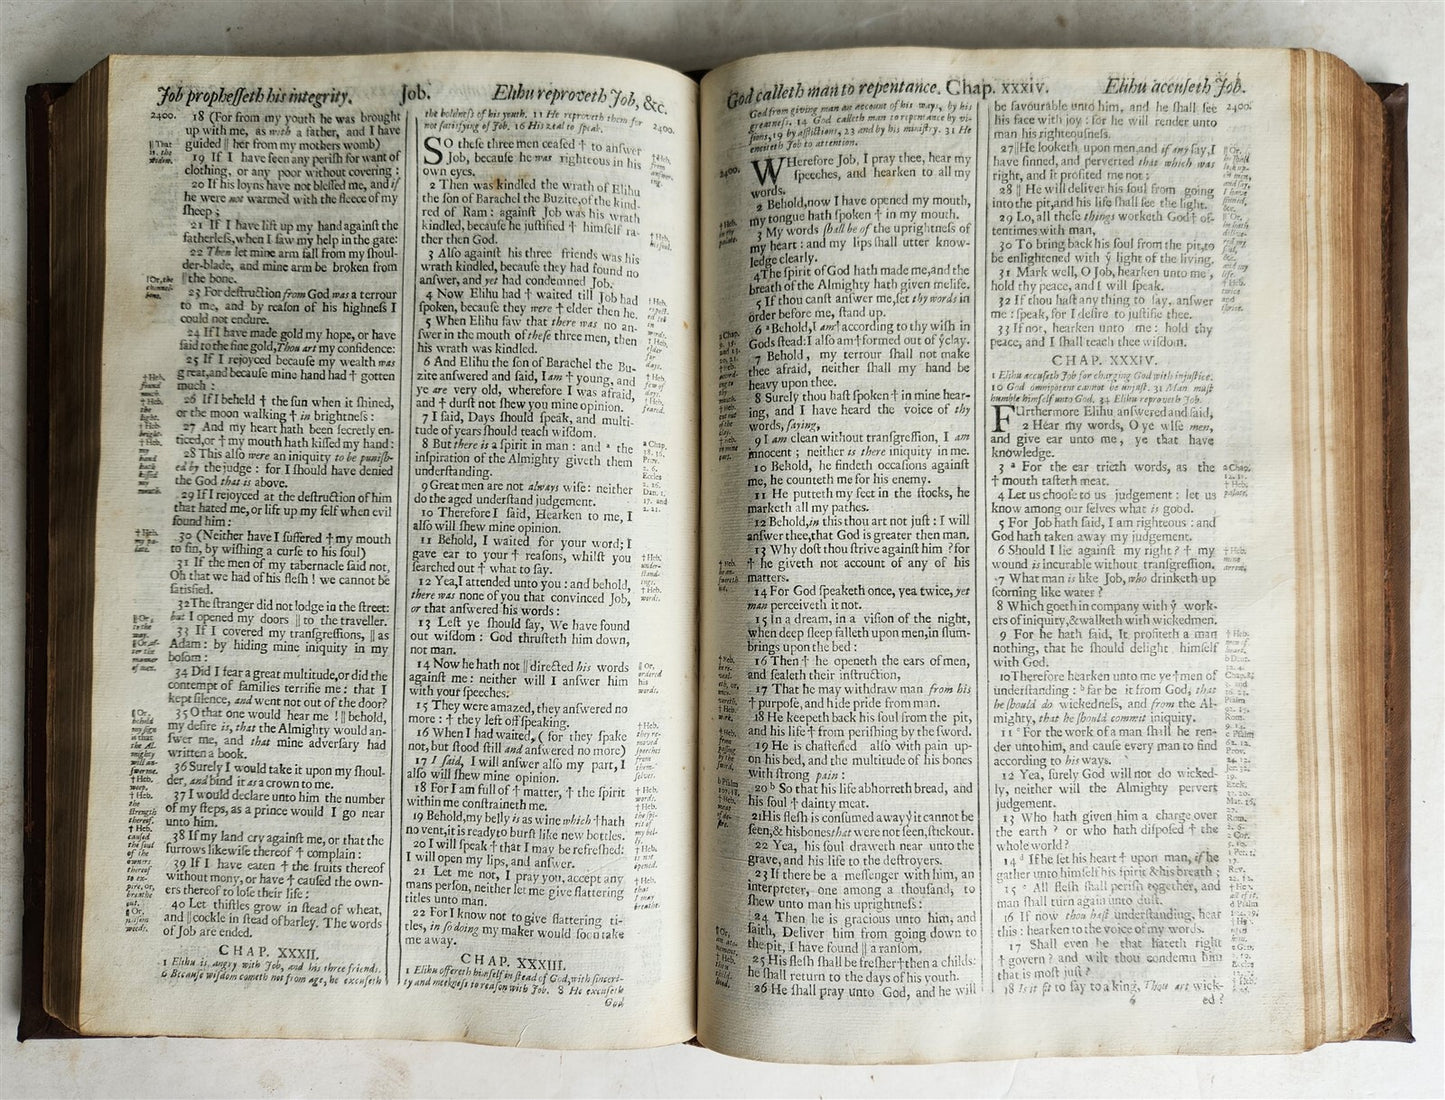 Job prophesseth his integrity.
Job.
Elihu reproveth Job, &c.
2400.
18 (For from my youth he was brought
up with me, as with a father, and I have
guided || her from my mothers womb)
19 If I have seen any perish for want of
clothing, or any poor without covering:
20 If his loyns have not blessed me, and if
he were not warmed with the fleece of my
sheep;
21 If I have lift up my hand against the
fatherless, when I saw my help in the gate:
22 Then let mine arm fall from my shoul-
der-blade, and mine arm be broken from
|| the bone.
23 For destruction from God was a terrour
to me, and by reason of his highness I
could not endure.
24 If I have made gold my hope, or have
said to the fine gold, Thou art my confidence:
25 If I rejoyced because my wealth was
great, and because mine hand had † gotten
much:
26 If I beheld † the sun when it shined,
or the moon walking † in brightness:
27 And my heart hath been secretly en-
ticed, or † my mouth hath kissed my hand:
28 This also were an iniquity to be punish-
ed by the judge: for I should have denied
the God that is above.
29 If I rejoyced at the destruction of him
that hated me, or lift up my self when evil
found him:
30 (Neither have I suffered † my mouth
to sin, by wishing a curse to his soul)
31 If the men of my tabernacle said not,
Oh that we had of his flesh! we cannot be
satisfied.
32 The stranger did not lodge in the street:
but I opened my doors || to the traveller.
33 If I covered my transgressions, || as
Adam: by hiding mine iniquity in my
bosom:
34 Did I fear a great multitude, or did the
contempt of families terrifie me: that I
kept silence, and went not out of the door?
35 O that one would hear me! || behold,
my desire is, that the Almighty would an-
swer me, and that mine adversary had
written a book.
36 Surely I would take it upon my shoul-
der, and bind it as a crown to me.
37 I would declare unto him the number
of my steps, as a prince would I go near
unto him.
38 If my land cry against me, or that the
furrows likewise thereof † complain:
39 If I have eaten † the fruits thereof
without mony, or have † caused the own-
ers thereof to lose their life:
40 Let thistles grow in stead of wheat,
and || cockle in stead of barley. The words
of Job are ended.
CHAP. XXXII.
1 Elihu is angry with Job, and his three friends.
6 Because wisdom cometh not from age, he excuseth
the boldness of his youth. 11 He reproveth them for
not satisfying of Job. 16 His zeal to speak.
2400.
SO these three men ceased † to answer
Job, because he was righteous in his
own eyes.
2 Then was kindled the wrath of Elihu
the son of Barachel the Buzite, of the kind-
red of Ram: against Job was his wrath
kindled, because he justified † himself ra-
ther then God.
3 Also against his three friends was his
wrath kindled, because they had found no
answer, and yet had condemned Job.
4 Now Elihu had † waited till Job had
spoken, because they were † elder then he.
5 When Elihu saw that there was no an-
swer in the mouth of these three men, then
his wrath was kindled.
6 And Elihu the son of Barachel the Bu-
zite answered and said, I am † young, and
ye are very old, wherefore I was afraid,
and † durst not shew you mine opinion.
7 I said, Days should speak, and multi-
tude of years should teach wisdom.
8 But there is a spirit in man: and a the
inspiration of the Almighty giveth them
understanding.
9 Great men are not always wise: neither
do the aged understand judgement.
10 Therefore I said, Hearken to me, I
also will shew mine opinion.
11 Behold, I waited for your word; I
gave ear to your † reasons, whilst you
searched out † what to say.
12 Yea, I attended unto you: and behold,
there was none of you that convinced Job,
or that answered his words:
13 Lest ye should say, We have found
out wisdom: God thrusteth him down,
not man.
14 Now he hath not || directed his words
against me: neither will I answer him
with your speeches.
15 They were amazed, they answered no
more: † they left off speaking.
16 When I had waited, (for they spake
not, but stood still and answered no more)
17 I said, I will answer also my part, I
also will shew mine opinion.
18 For I am full of † matter, † the spirit
within me constraineth me.
19 Behold, my belly is as wine which † hath
no vent, it is ready to burst like new bottles.
20 I will speak † that I may be refreshed:
I will open my lips, and answer.
21 Let me not, I pray you, accept any
mans person, neither let me give flattering
titles unto man.
22 For I know not to give flattering ti-
tles, in so doing my maker would soon take
me away.
CHAP. XXXIII.
1 Elihu offereth himself in stead of God, with sinceri-
ty and meekness to reason with Job. 8 He excuseth
God
God calleth man to repentance. Chap. xxxiv.
Elihu accuseth Job.
God from giving man an account of his ways, by his
greatness. 14 God calleth man to repentance by vi-
sions, 19 by afflictions, 23 and by his ministry. 31 He
enciteth Job to attention.
2400.
WHerefore Job, I pray thee, hear my
speeches, and hearken to all my
words.
2 Behold, now I have opened my mouth,
my tongue hath spoken † in my mouth.
3 My words shall be of the uprightness of
my heart: and my lips shall utter know-
ledge clearly.
4 The spirit of God hath made me, and the
breath of the Almighty hath given me life.
5 If thou canst answer me, set thy words in
order before me, stand up.
6 a Behold, I am † according to thy wish in
Gods stead: I also am † formed out of ye clay.
7 Behold, my terrour shall not make
thee afraid, neither shall my hand be
heavy upon thee.
8 Surely thou hast spoken † in mine hear-
ing, and I have heard the voice of thy
words, saying,
9 I am clean without transgression, I am
innocent; neither is there iniquity in me.
10 Behold, he findeth occasions against
me, he counteth me for his enemy.
11 He putteth my feet in the stocks, he
marketh all my pathes.
12 Behold, in this thou art not just: I will
answer thee, that God is greater then man.
13 Why dost thou strive against him? for
† he giveth not account of any of his
matters.
14 For God speaketh once, yea twice, yet
man perceiveth it not.
15 In a dream, in a vision of the night,
when deep sleep falleth upon men, in slum-
brings upon the bed:
16 Then † he openeth the ears of men,
and sealeth their instruction,
17 That he may withdraw man from his
† purpose, and hide pride from man.
18 He keepeth back his soul from the pit,
and his life † from perishing by the sword.
19 He is chastened also with pain up-
on his bed, and the multitude of his bones
with strong pain:
20 b So that his life abhorreth bread, and
his soul † dainty meat.
21 His flesh is consumed away yt it cannot be
seen, & his bones that were not seen, stick out.
22 Yea, his soul draweth near unto the
grave, and his life to the destroyers.
23 If there be a messenger with him, an
interpreter, one among a thousand, to
shew unto man his uprightness:
24 Then he is gracious unto him, and
saith, Deliver him from going down to
the pit, I have found || a ransom.
25 His flesh shall be fresher † then a childs:
he shall return to the days of his youth.
26 He shall pray unto God, and he will
be favourable unto him, and he shall see
his face with joy: for he will render unto
man his righteousness.
2400.
27 || He looketh upon men, and if any say, I
have sinned, and perverted that which was
right, and it profited me not:
28 || He will deliver his soul from going
into the pit, and his life shall see the light.
29 Lo, all these things worketh God † of-
tentimes with man,
30 To bring back his soul from the pit, to
be enlightened with ye light of the living.
31 Mark well, O Job, hearken unto me,
hold thy peace, and I will speak.
32 If thou hast any thing to say, answer
me: speak, for I desire to justifie thee.
33 If not, hearken unto me: hold thy
peace, and I shall teach thee wisdom.
CHAP. XXXIV.
1 Elihu accuseth Job for charging God with injustice.
10 God omnipotent cannot be unjust. 31 Man must
humble himself unto God. 34 Elihu reproveth Job.
FUrthermore Elihu answered and said,
2 Hear my words, O ye wise men,
and give ear unto me, ye that have
knowledge.
3 a For the ear trieth words, as the
† mouth tasteth meat.
4 Let us choose to us judgement: let us
know among our selves what is good.
5 For Job hath said, I am righteous: and
God hath taken away my judgement.
6 Should I lie against my right? † my
wound is incurable without transgression.
7 What man is like Job, who drinketh up
scorning like water?
8 Which goeth in company with ye work-
ers of iniquity, & walketh with wicked men.
9 For he hath said, It profiteth a man
nothing, that he should delight himself
with God.
10 Therefore hearken unto me ye † men of
understanding: b far be it from God, that
he should do wickedness, and from the Al-
mighty, that he should commit iniquity.
11 c For the work of a man shall he ren-
der unto him, and cause every man to find
according to his ways.
12 Yea, surely God will not do wicked-
ly, neither will the Almighty pervert
judgement.
13 Who hath given him a charge over
the earth? or who hath disposed † the
whole world?
14 d If he set his heart † upon man, if he
gather unto himself his spirit & his breath;
15 e All flesh shall perish together, and
man shall turn again unto dust.
16 If now thou hast understanding, hear
this: hearken to the voice of my words.
17 Shall even he that hateth right
† govern? and wilt thou condemn him
that is most just?
18 Is it fit to say to a king, Thou art wick-
ed?